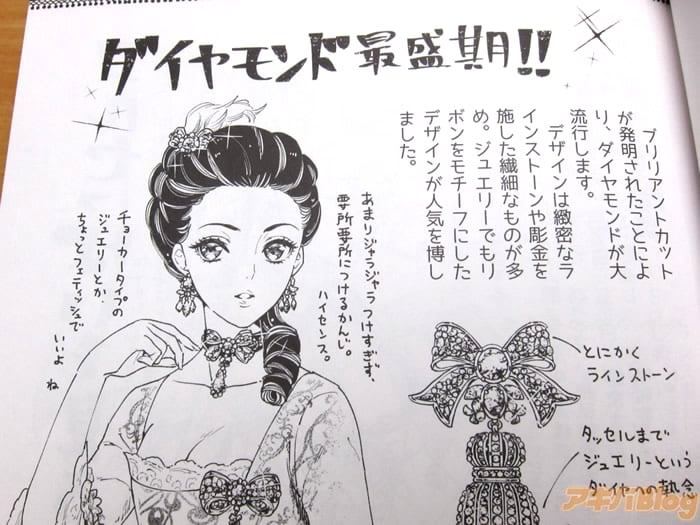 ダイヤモンド最盛期!!
ブリリアントカット
が発明されたことによ
り、ダイヤモンドが大
流行します。
デザインは緻密なラ
インストーンや彫金を
施した繊細なものが多
め。ジュエリーでもリ
ボンをモチーフにした
デザインが人気を博し
ました。
あまりジャラジャラつけすぎず、
要所要所につけるかんじ。
ハイセンス。
チョーカータイプの
ジュエリーとか、
ちょっとフェティッシュで
いいよね
とにかく
ラインストーン
タッセルまで
ジュエリーという
ダイヤへの執念
アキバBlog